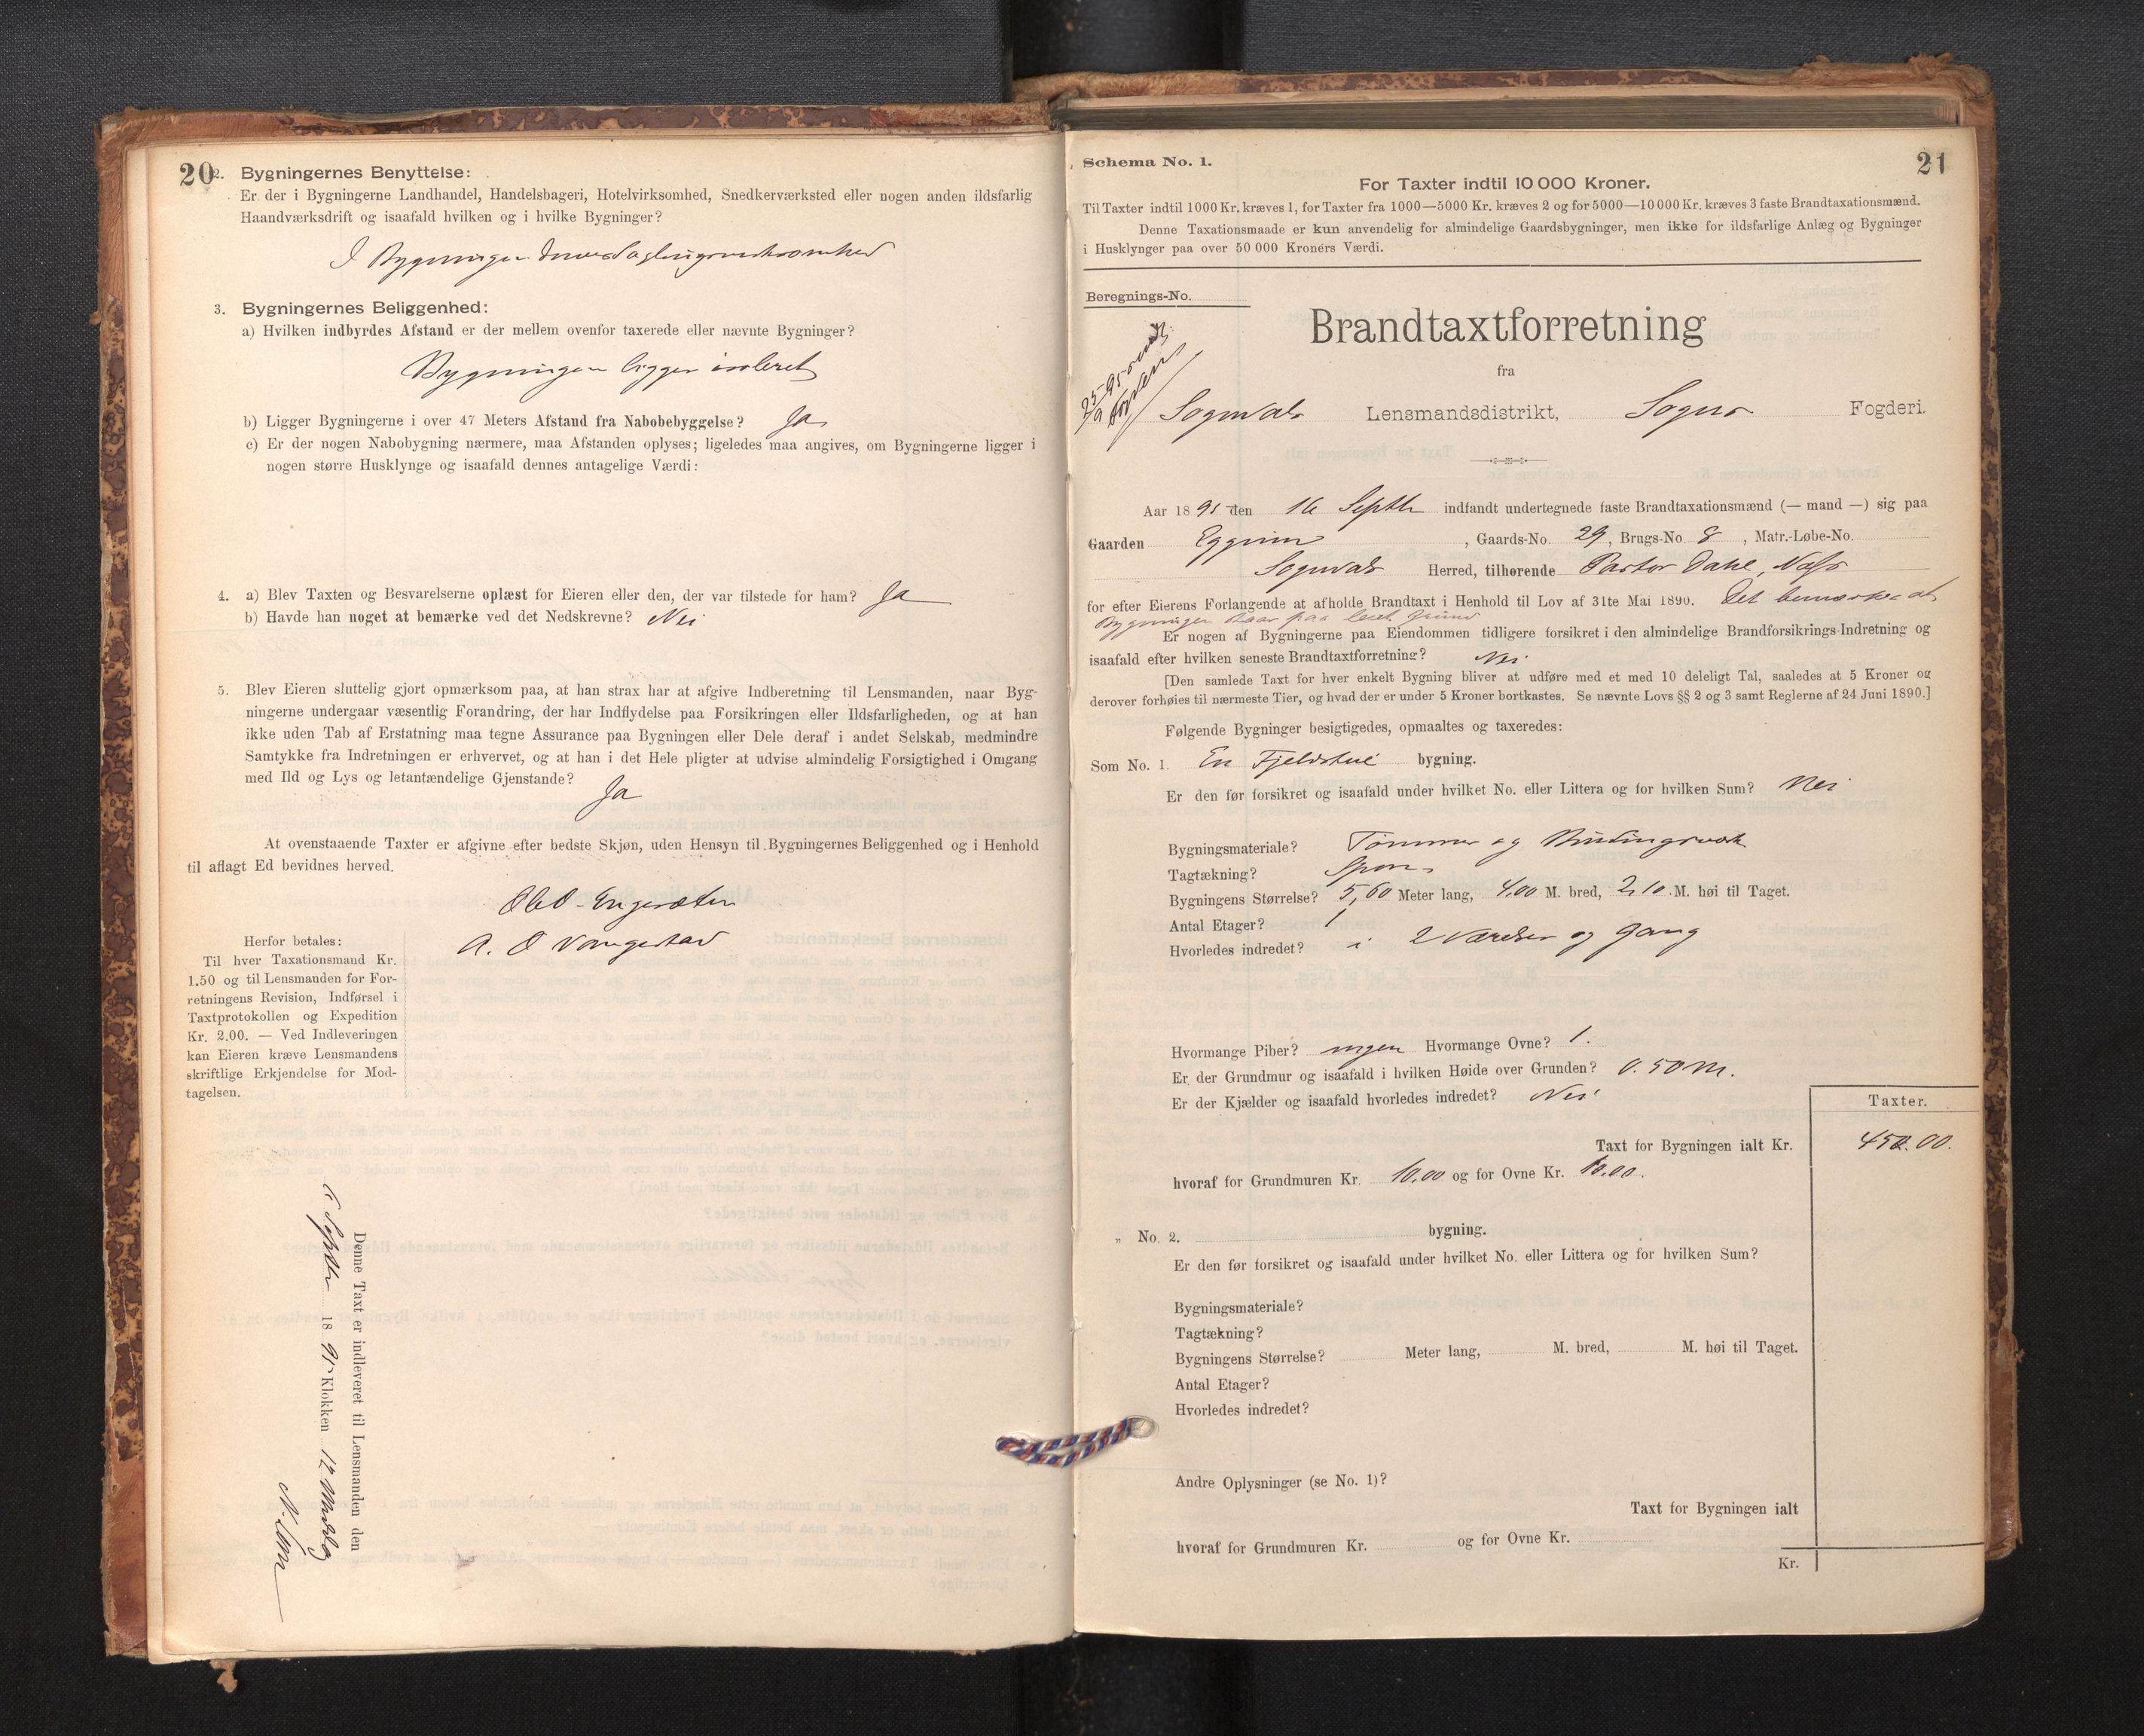 20
2. Bygningernes Benyttelse:
Er der i Bygningerne Landhandel, Handelsbageri, Hotelvirksomhed, Snedkerværksted eller nogen anden ildsfarlig
Haandværksdrift og isaafald hvilken og i hvilke Bygninger?
I Bygningen
3. Bygningernes Beliggenhed:
a) Hvilken indbyrdes Afstand er der mellem ovenfor taxerede eller nævnte Bygninger?
Bygningen ligger isoleret
b) Ligger Bygningerne i over 47 Meters Afstand fra Nabobebyggelse? Ja
c) Er der nogen Nabobygning nærmere, maa Afstanden oplyses; ligeledes maa angives, om Bygningerne ligger i
nogen større Husklynge og isaafald dennes antagelige Værdi:
4. a) Blev Taxten og Besvarelserne oplæst for Eieren eller den, der var tilstede for ham? Ja
b) Havde han noget at bemærke ved det Nedskrevne? Nei
5. Blev Eieren sluttelig gjort opmærksom paa, at han strax har at afgive Indberetning til Lensmanden, naar Byg-
ningerne undergaar væsentlig Forandring, der har Indflydelse paa Forsikringen eller Ildsfarligheden, og at han
ikke uden Tab af Erstatning maa tegne Assurance paa Bygningen eller Dele deraf i andet Selskab, medmindre
Samtykke fra Indretningen er erhvervet, og at han i det Hele pligter at udvise almindelig Forsigtighed i Omgang
med Ild og Lys og letantændelige Gjenstande?
Ja
At ovenstaaende Taxter er afgivne efter bedste Skjøn, uden Hensyn til Bygningernes Beliggenhed og i Henhold
til aflagt Ed bevidnes herved.
A. O Vangestad
Herfor betales:
Til hver Taxationsmand Kr.
1.50 og til Lensmanden for For-
retningens Revision, Indførsel i
Taxtprotokollen og Expedition
Kr. 2.00. — Ved Indleveringen
kan Eieren kræve Lensmandens
skriftlige Erkjendelse for Mod-
tagelsen.
Denne Taxt er indleveret til Lensmanden den
Septbr 1895 Klokken 12 Middag
21
Schema No. 1.
For Taxter indtil 10 000 Kroner.
Til Taxter indtil 1000 Kr. kræves 1, for Taxter fra 1000—5000 Kr. kræves 2 og for 5000—10 000 Kr. kræves 3 faste Brandtaxationsmænd.
Denne Taxationsmaade er kun anvendelig for almindelige Gaardsbygninger, men ikke for ildsfarlige Anlæg og Bygninger
i Husklynger paa over 50 000 Kroners Værdi.
Beregnings-No.
Brandtaxtforretning
fra
Sogndals Lensmandsdistrikt, Sogns Fogderi.
Aar 1895 den 16 Septbr indfandt undertegnede faste Brandtaxationsmænd (— mand —) sig paa
Gaarden Eggum, Gaards-No. 29, Brugs-No. 8, Matr.-Løbe-No.
Sogndals Herred, tilhørende Pastor Dahl,
for efter Eierens Forlangende at afholde Brandtaxt i Henhold til Lov af 31te Mai 1890. Det bemærkes at
Bygningen staar paa leiet Grund
Er nogen af Bygningerne paa Eiendommen tidligere forsikret i den almindelige Brandforsikrings-Indretning og
isaafald efter hvilken seneste Brandtaxtforretning? Nei
[Den samlede Taxt for hver enkelt Bygning bliver at udføre med et med 10 deleligt Tal, saaledes at 5 Kroner og
derover forhøies til nærmeste Tier, og hvad der er under 5 Kroner bortkastes. Se nævnte Lovs §§ 2 og 3 samt Reglerne af 24 Juni 1890.]
Følgende Bygninger besigtigedes, opmaaltes og taxeredes:
Som No. 1. En Fjeldstue bygning.
Er den før forsikret og isaafald under hvilket No. eller Littera og for hvilken Sum? Nei
Bygningsmateriale? Tømmer og Bindingsværk
Tagtækning? Spon
Bygningens Størrelse? 5,60 Meter lang, 4.00 M. bred, 2,10 M. høi til Taget.
Antal Etager? 1
Hvorledes indredet? i 2 Værelser og Gang
Hvormange Piber? ingen Hvormange Ovne? 1.
Er der Grundmur og isaafald i hvilken Høide over Grunden? 0.50 M.
Er der Kjælder og isaafald hvorledes indredet? Nei
Taxter.
Taxt for Bygningen ialt Kr. 450.00.
hvoraf for Grundmuren Kr. 10.00 og for Ovne Kr. 10.00.
„ No. 2. bygning.
Er den før forsikret og isaafald under hvilket No. eller Littera og for hvilken Sum?
Bygningsmateriale?
Tagtækning?
Bygningens Størrelse? Meter lang, M. bred, M. høi til Taget.
Antal Etager?
Hvorledes indredet?
Andre Oplysninger (se No. 1)?
Taxt for Bygningen ialt
hvoraf for Grundmuren Kr. og for Ovne Kr.
Kr.